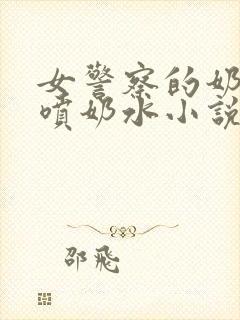 女警察的奶
喷奶水小説
邵飛